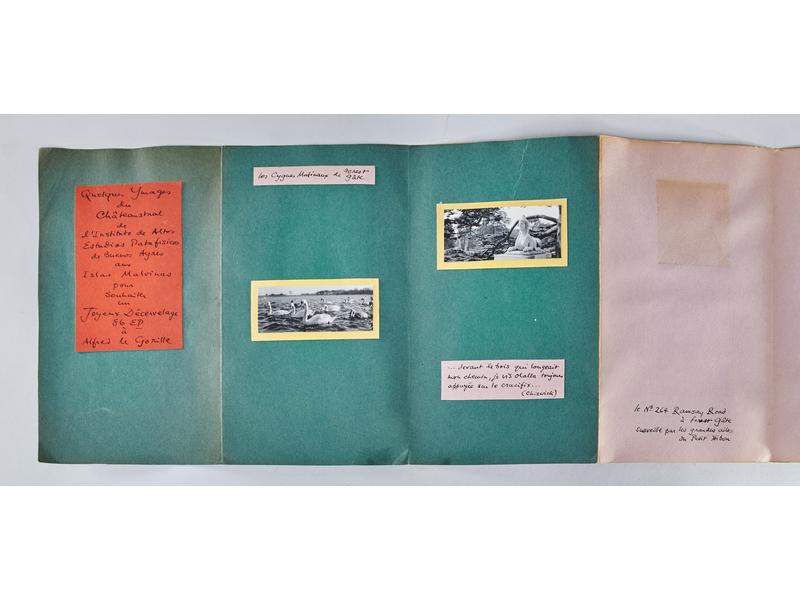 Quelques Ymages
du
Châteaustral
de
l'Instituto de Altos
Estudios Patafisicos
de Buenos Ayres
aux
Islas Malvinas
pour
Souhaiter
un
Joyeux Décervelage
86 EP
à
Alfred le Gorille
Les Cygnes Matinaux de Forest-
Gâte
... devant le bois qui longeait
mon chemin, je vis Olalla toujours
appuyée sur le crucifix...
(Chiswick)
le Nº 264 Ramsay Road
à Forest Gâte
surveillé par les grandes ailes
du Petit Hibou